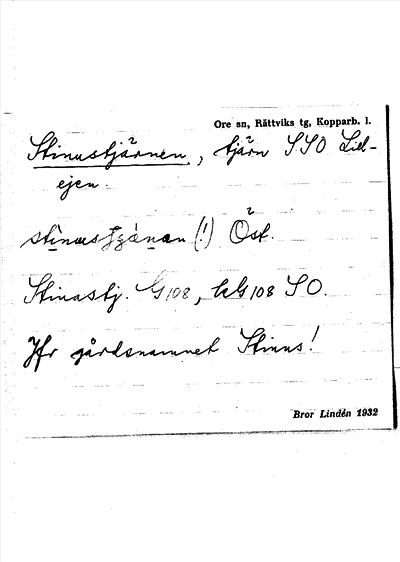 Ore sn, Rättviks tg, Kopparb. l.
Stinustjärnen, tjärn SSO Lill-
ejen.
(!) Öst.
Stinastj. G108, kG108 SO.
Jfr gårdsnamnet Stinus!
Bror Lindén 1932